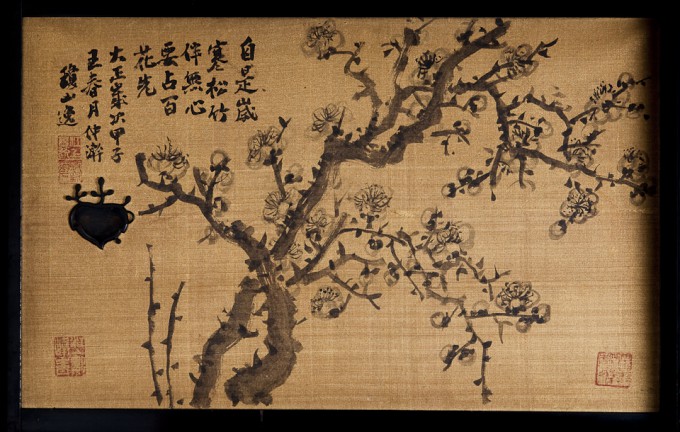 自是歳
寒松竹
伴無心
要占百
花先
大正歳次甲子
王春月仲澣
山逸